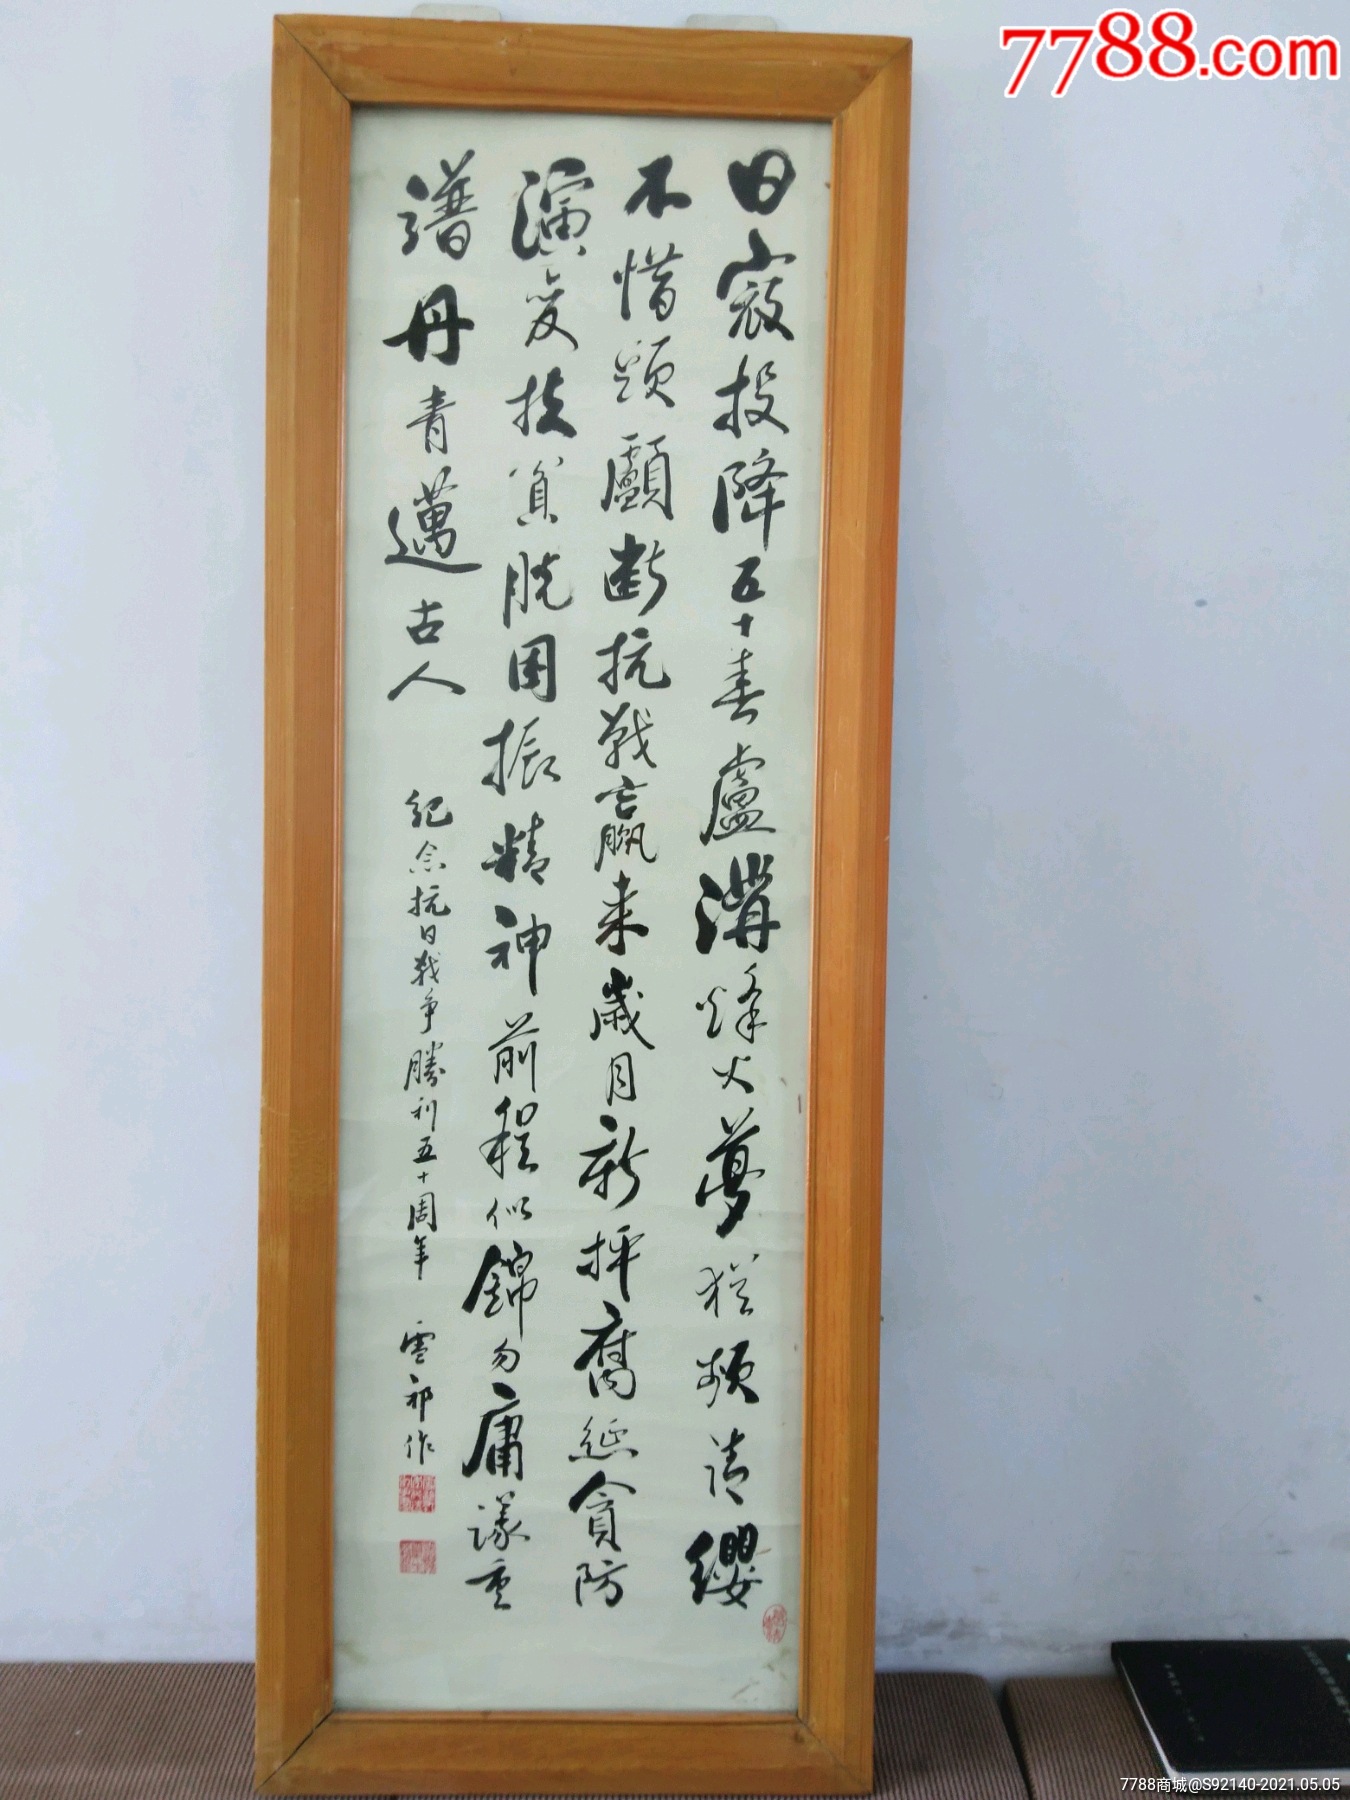 日寇投降五十春盧溝烽火夢猶頻請纓
不惜頭顱断抗戰赢来歲月新抨腐延貪防
演变扶貧脱困振精神前程似錦勿庸議重
譜丹青邁古人
紀念抗日戰争勝利五十周年 雪祁作
7788.com
7788商城@S92140-2021.05.05